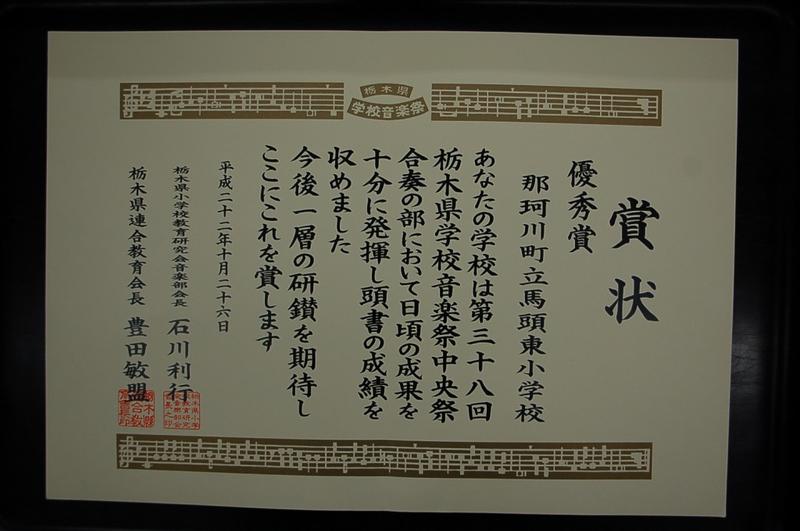 栃木県
学校音楽祭
賞状
那珂川町立馬頭東小学校
優秀賞
あなたの学校は第三十八回
栃木県学校音楽祭中央祭
合奏の部において日頃の成果を
十分に発揮し頭書の成績を
収めました
今後一層の研鑚を期待し
ここにこれを賞します
平成二十二年十月二十六日
栃木県小学校教育研究会音楽部会長 石川利行
栃木県連合教育会長 豊田敏盟